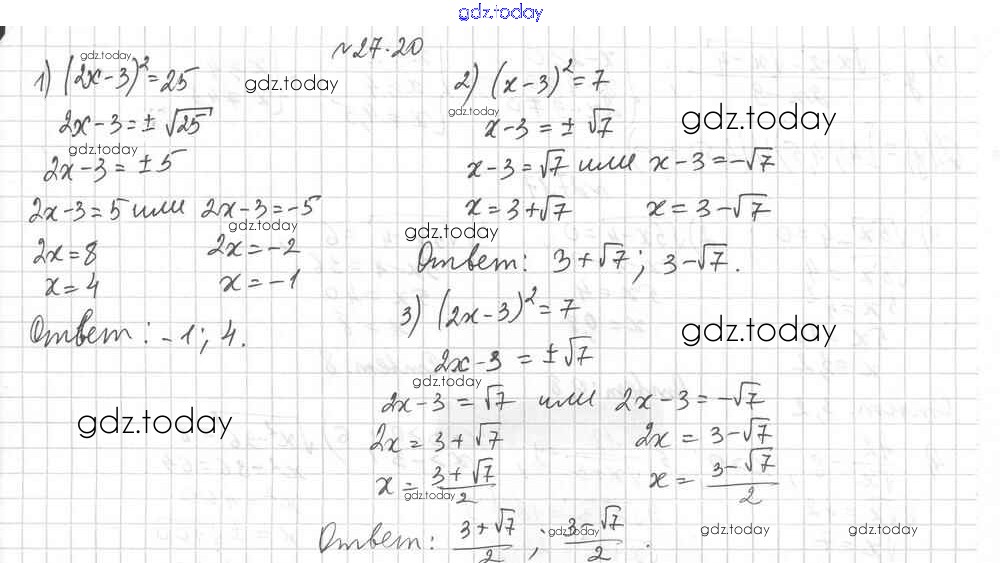 gdz.today
№27.20
gdz.today
1) (2x-3)²=25
gdz.today
2x-3=±√25
gdz.today
2x-3=±5
2x-3=5 или 2x-3=-5
gdz.today
2x=8 2x=-2
x=4 x=-1
Ответ: -1; 4.
gdz.today
2) (x-3)²=7
gdz.today
gdz.today
x-3=±√7
x-3=√7 или x-3=-√7
x=3+√7 x=3-√7
gdz.today
Ответ: 3+√7; 3-√7.
3) (2x-3)²=7
gdz.today
2x-3=±√7
gdz.today
2x-3=√7 или 2x-3=-√7
2x=3+√7 2x=3-√7
x=(3+√7)/2 x=(3-√7)/2
gdz.today
Ответ: (3+√7)/2; (3-√7)/2.
gdz.today
gdz.today gdz.today